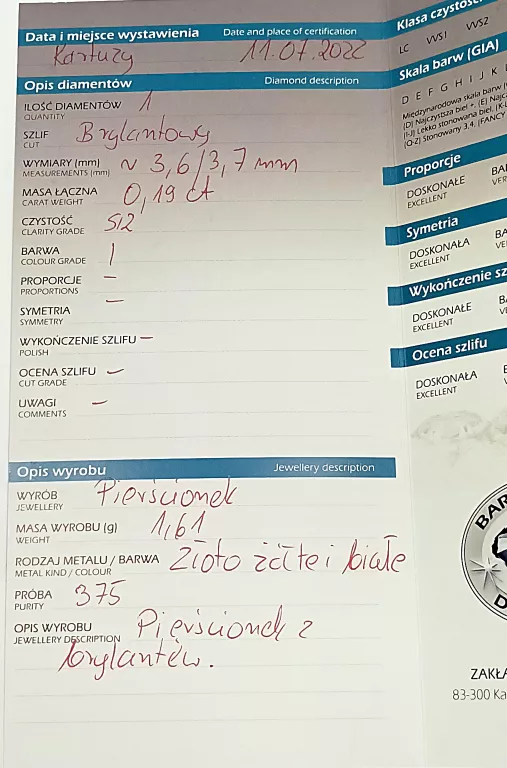 Data i miejsce wystawienia Date and place of certification
Kartuzy 11.07.2022
Opis diamentów Diamond description
ILOŚĆ DIAMENTÓW 1
QUANTITY
SZLIF Brylantowy
CUT
WYMIARY (mm) ~ 3,6/3,7 mm
MEASUREMENTS (mm)
MASA ŁĄCZNA 0,19 ct
CARAT WEIGHT
CZYSTOŚĆ SI2
CLARITY GRADE
BARWA I
COLOUR GRADE
PROPORCJE —
PROPORTIONS
SYMETRIA —
SYMMETRY
WYKOŃCZENIE SZLIFU —
POLISH
OCENA SZLIFU —
CUT GRADE
UWAGI —
COMMENTS
Opis wyrobu Jewellery description
WYRÓB Pierścionek
JEWELLERY
MASA WYROBU (g) 1,61
WEIGHT
RODZAJ METALU / BARWA Złoto żółte i białe
METAL KIND / COLOUR
PRÓBA 375
PURITY
OPIS WYROBU Pierścionek z
JEWELLERY DESCRIPTION
brylantem.
Klasa czystoś
LC VVS1 VVS2
Skala barw (GIA)
D E F G H I J K
Międzynarodowa skala barw
(D) Najczystsza biel +, (E) Najcz
(I-J) Lekko stonowana biel, (K-L
(O-Z) Stonowany 3,4, (FANCY
Proporcje
DOSKONAŁE BA
EXCELLENT VER
Symetria
DOSKONAŁA BA
EXCELLENT VE
Wykończenie sz
DOSKONAŁE B
EXCELLENT V
Ocena szlifu
DOSKONAŁA
EXCELLENT
BAR
D
ZAKŁA
83-300 Ka